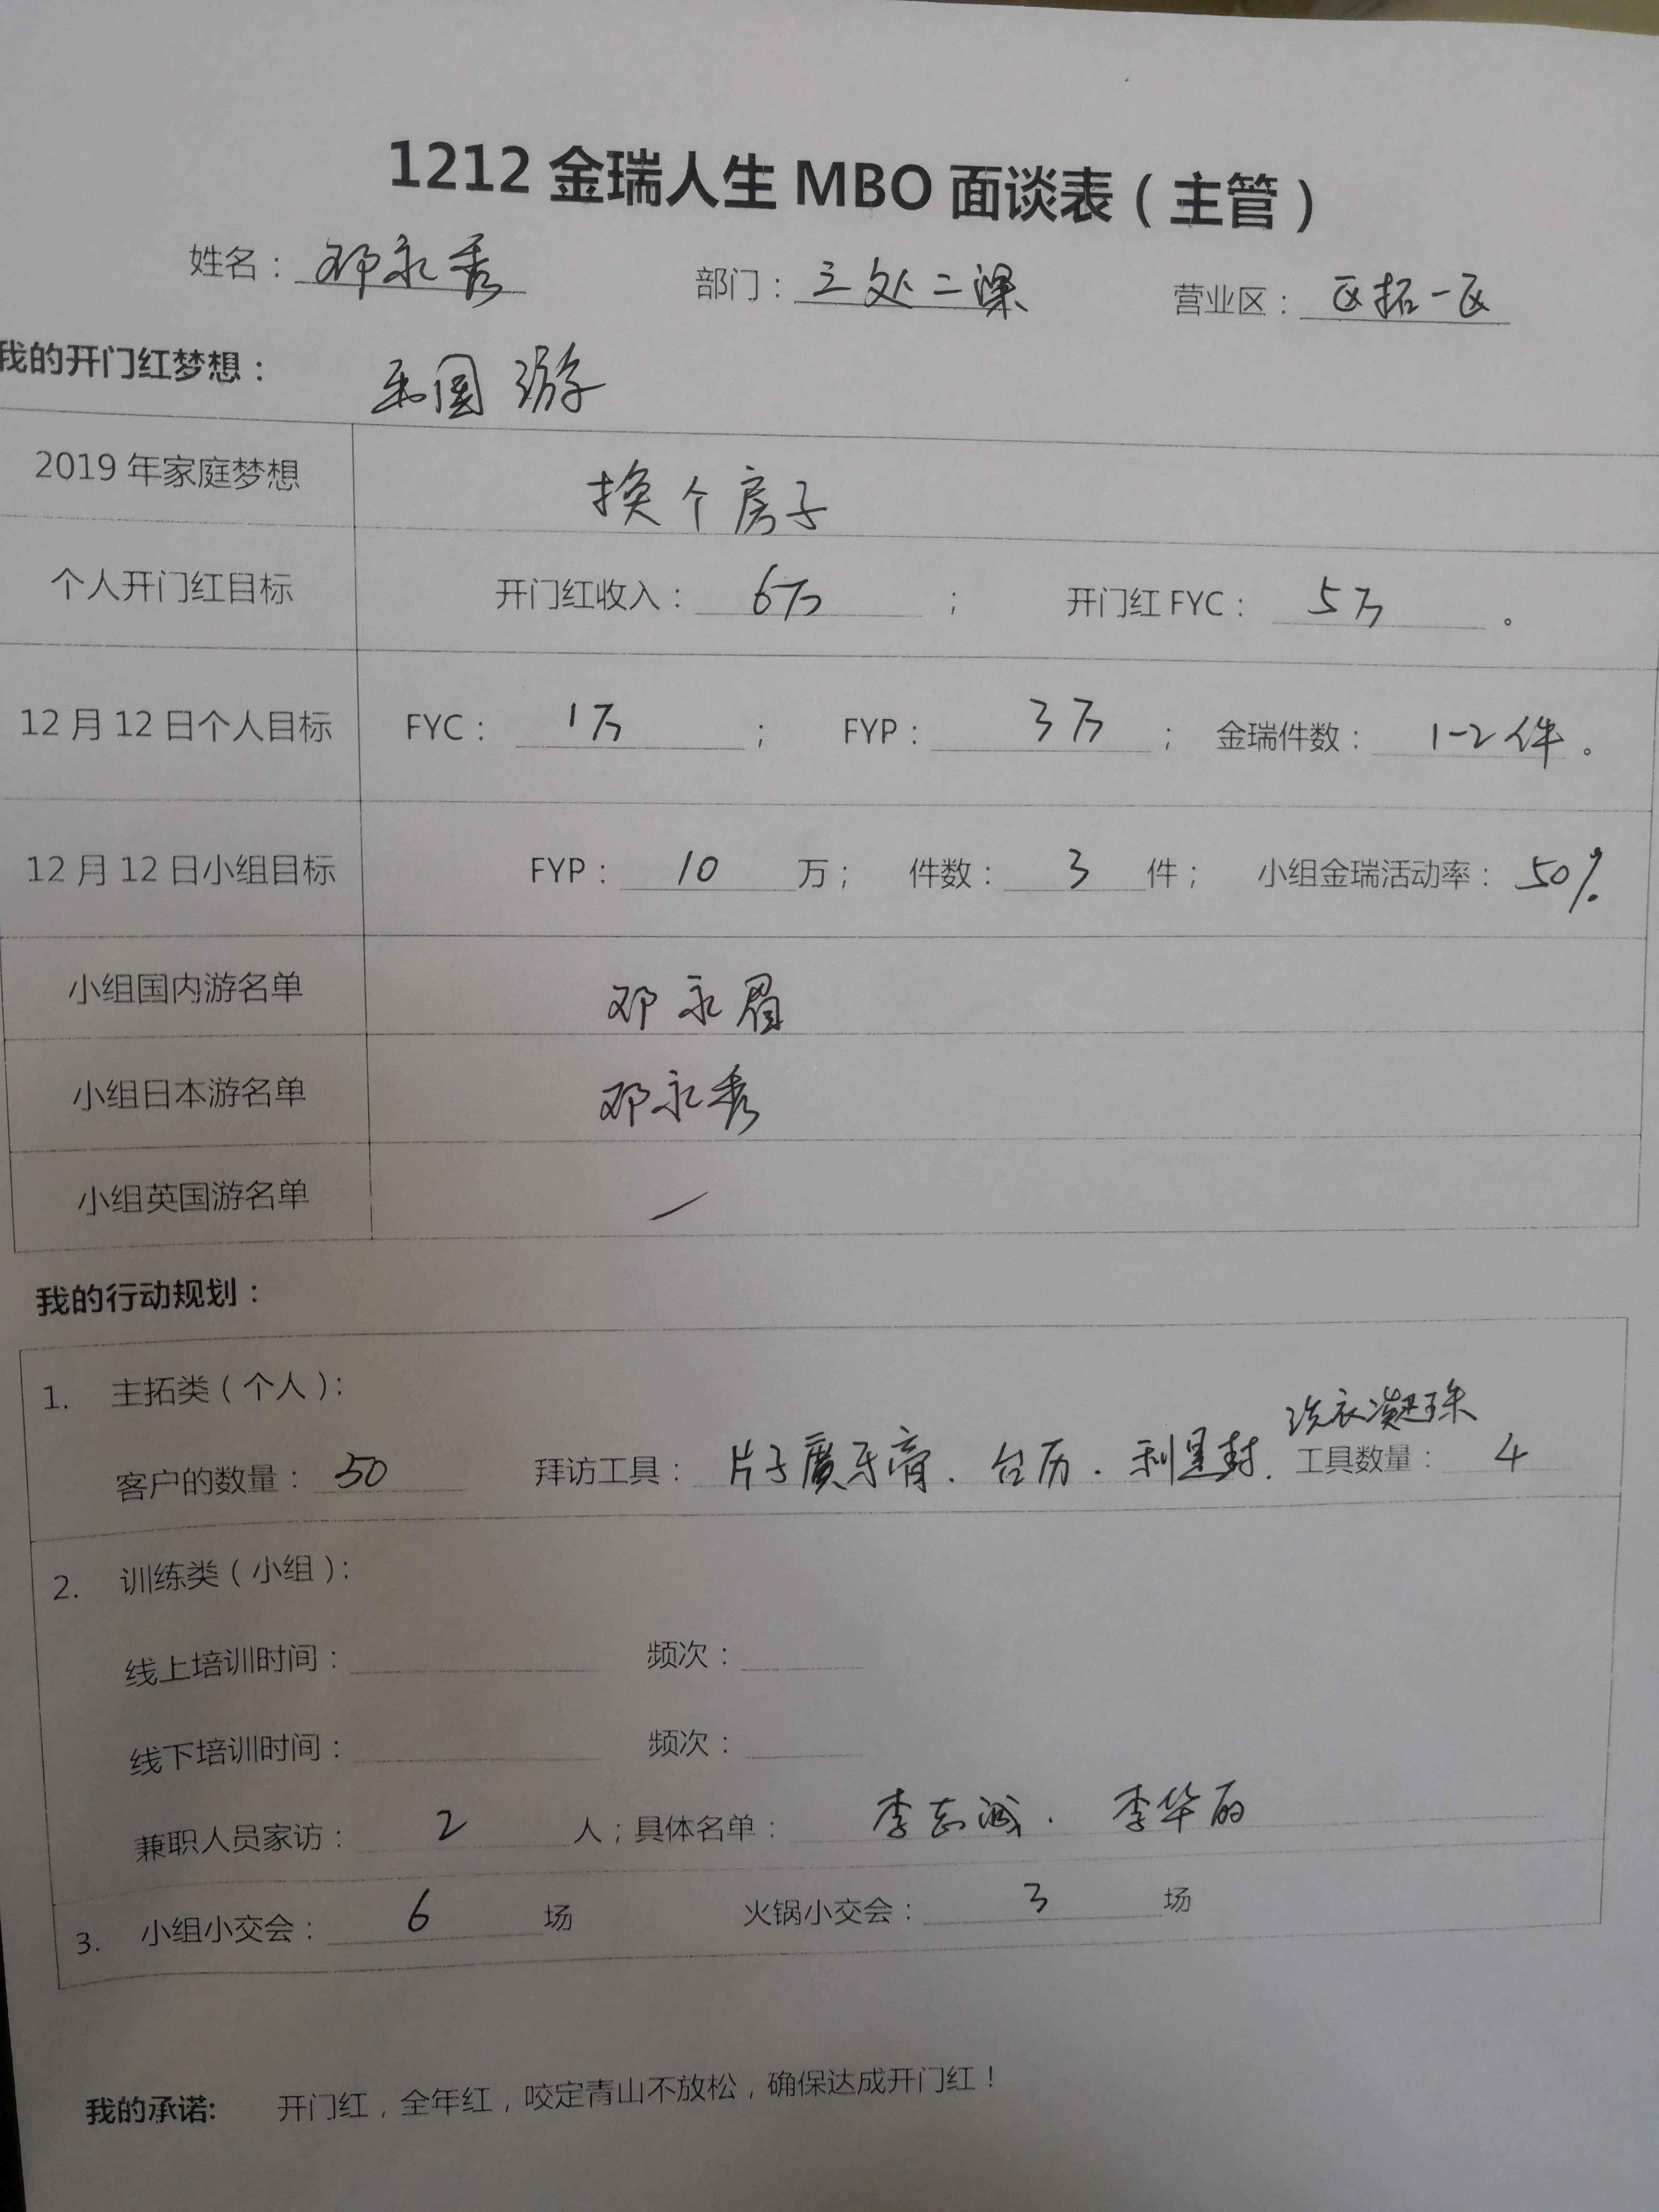 1212 金瑞人生 MBO 面谈表（主管）
姓名： 邓永秀 部门： 三处二梁 营业区： 区拓一区
我的开门红梦想： 国游
2019 年家庭梦想 换个房子
个人开门红目标 开门红收入： 6万 ； 开门红 FYC： 5万 。
12 月 12 日个人目标 FYC： 1万 ； FYP： 3万 ； 金瑞件数： 1-2件 。
12 月 12 日小组目标 FYP： 10 万； 件数： 3 件； 小组金瑞活动率： 50%
小组国内游名单 邓永眉
小组日本游名单 邓永秀
小组英国游名单 /
我的行动规划：
1. 主拓类（个人）：
洗衣凝珠
客户的数量： 50 拜访工具： 片子廣牙膏．台历．利是封． 工具数量： 4
2. 训练类（小组）：
线上培训时间： 频次：
线下培训时间： 频次：
兼职人员家访： 2 人；具体名单： 李志诚． 李华丽
3. 小组小交会： 6 场 火锅小交会： 3 场
我的承诺: 开门红，全年红，咬定青山不放松，确保达成开门红！